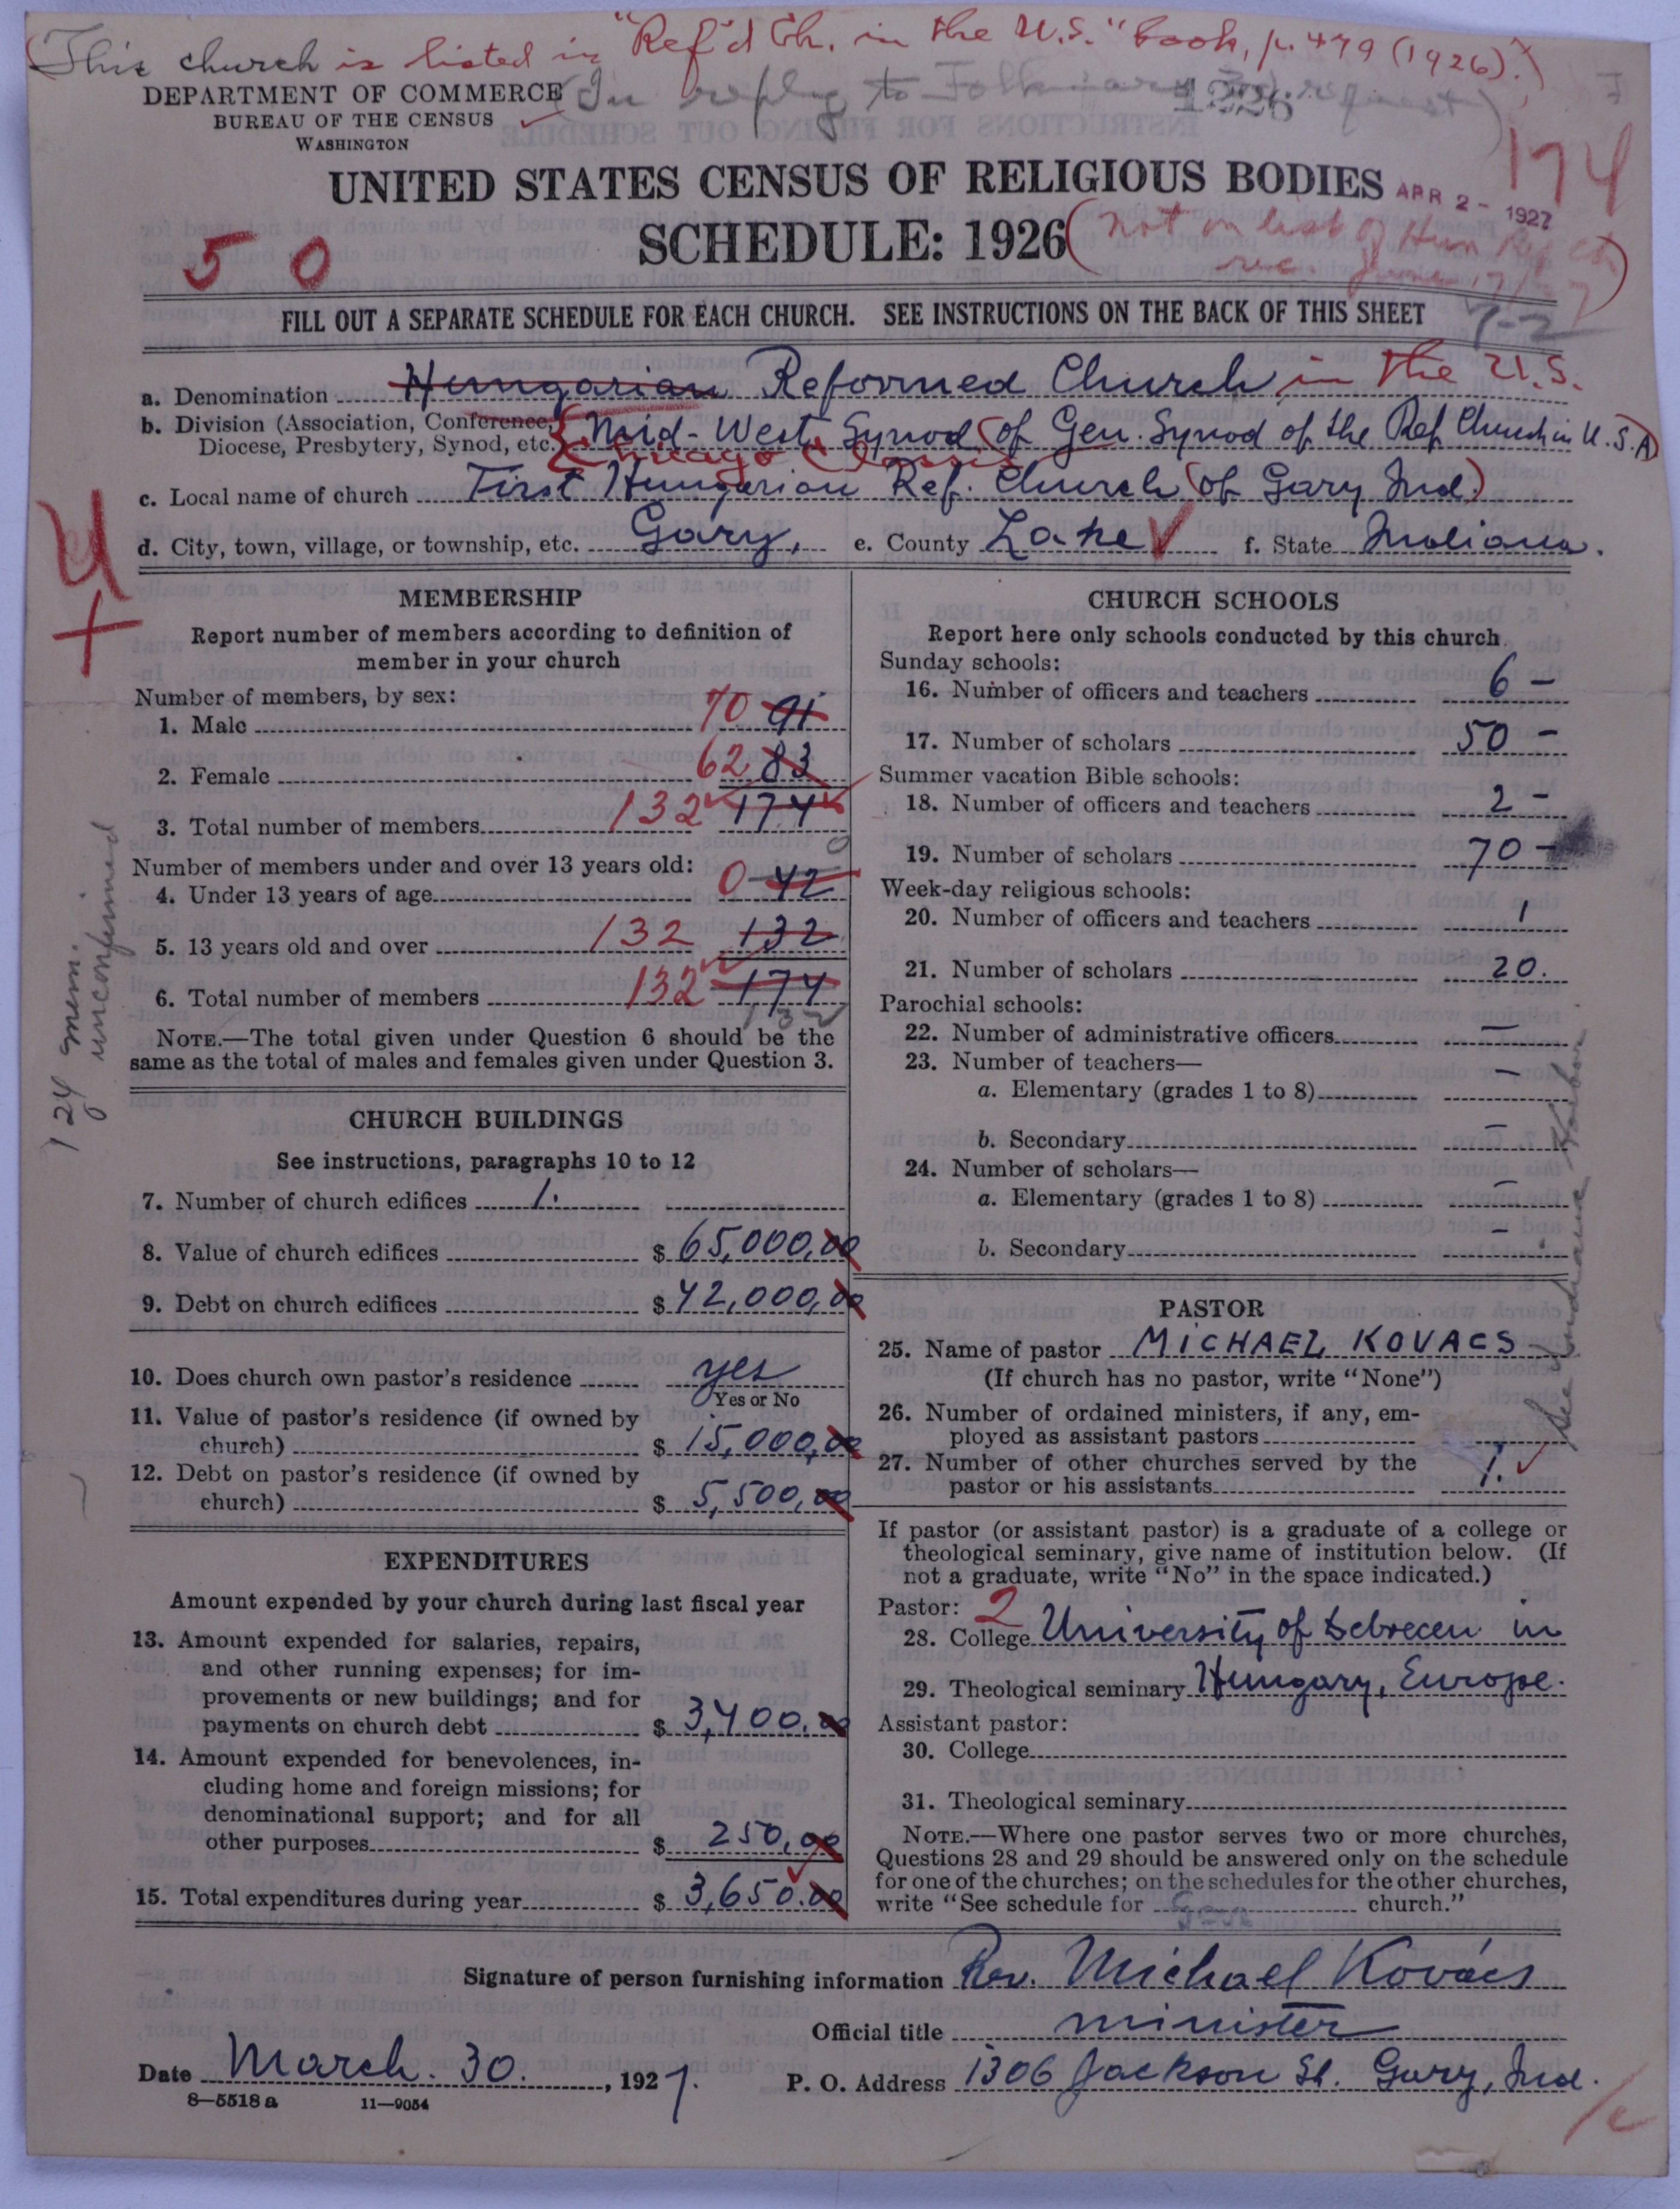 This church is listed in "Ref'd Ch. in the U.S." book, p. 479 (1926).
DEPARTMENT OF COMMERCE
(In reply to request)
BUREAU OF THE CENSUS
WASHINGTON
174
UNITED STATES CENSUS OF RELIGIOUS BODIES
APR 2 - 1927
SCHEDULE: 1926
(not on list of Hun Ref Ch
rec. June 17/27)
5 0
FILL OUT A SEPARATE SCHEDULE FOR EACH CHURCH. SEE INSTRUCTIONS ON THE BACK OF THIS SHEET
7-2
a. Denomination Hungarian Reformed Church in the U.S.
b. Division (Association, Conference, Diocese, Presbytery, Synod, etc. Mid-West Synod (of Gen. Synod of the Ref Church in U.S.A)
Chicago Classis
c. Local name of church First Hungarian Ref. Church (of Gary Ind.)
d. City, town, village, or township, etc. Gary, e. County Lake f. State Indiana.
4
+
MEMBERSHIP
Report number of members according to definition of
member in your church
Number of members, by sex:
1. Male 70 91
2. Female 62 83
3. Total number of members 132 174
Number of members under and over 13 years old: 0
4. Under 13 years of age 0 42
5. 13 years old and over 132 132
6. Total number of members 132 174
132
NOTE.—The total given under Question 6 should be the
same as the total of males and females given under Question 3.
124 mem.
unconfirmed
CHURCH BUILDINGS
See instructions, paragraphs 10 to 12
7. Number of church edifices 1.
8. Value of church edifices $ 65,000,00
9. Debt on church edifices $ 42,000,00
10. Does church own pastor's residence yes
Yes or No
11. Value of pastor's residence (if owned by
church) $ 15,000,00
12. Debt on pastor's residence (if owned by
church) $ 5,500,00
EXPENDITURES
Amount expended by your church during last fiscal year
13. Amount expended for salaries, repairs,
and other running expenses; for im-
provements or new buildings; and for
payments on church debt $ 3,400.00
14. Amount expended for benevolences, in-
cluding home and foreign missions; for
denominational support; and for all
other purposes $ 250,00
15. Total expenditures during year $ 3,650.00
CHURCH SCHOOLS
Report here only schools conducted by this church
Sunday schools:
16. Number of officers and teachers 6 —
17. Number of scholars 50 —
Summer vacation Bible schools:
18. Number of officers and teachers 2 —
19. Number of scholars 70 —
Week-day religious schools:
20. Number of officers and teachers 1
21. Number of scholars 20.
Parochial schools:
22. Number of administrative officers —
23. Number of teachers—
a. Elementary (grades 1 to 8) —
b. Secondary —
24. Number of scholars—
a. Elementary (grades 1 to 8) —
b. Secondary —
See Indiana Harbor
PASTOR
25. Name of pastor MICHAEL KOVACS
(If church has no pastor, write "None")
26. Number of ordained ministers, if any, em-
ployed as assistant pastors
27. Number of other churches served by the
pastor or his assistants 1.
If pastor (or assistant pastor) is a graduate of a college or
theological seminary, give name of institution below. (If
not a graduate, write "No" in the space indicated.)
Pastor: 2
28. College University of Debrecen in
29. Theological seminary Hungary, Europe.
Assistant pastor:
30. College
31. Theological seminary
NOTE.—Where one pastor serves two or more churches,
Questions 28 and 29 should be answered only on the schedule
for one of the churches; on the schedules for the other churches,
write "See schedule for church."
Signature of person furnishing information Rev. Michael Kovács
Official title minister
Date March. 30., 1927. P. O. Address 1306 Jackson St. Gary, Ind.
8—5518 a 11—9054